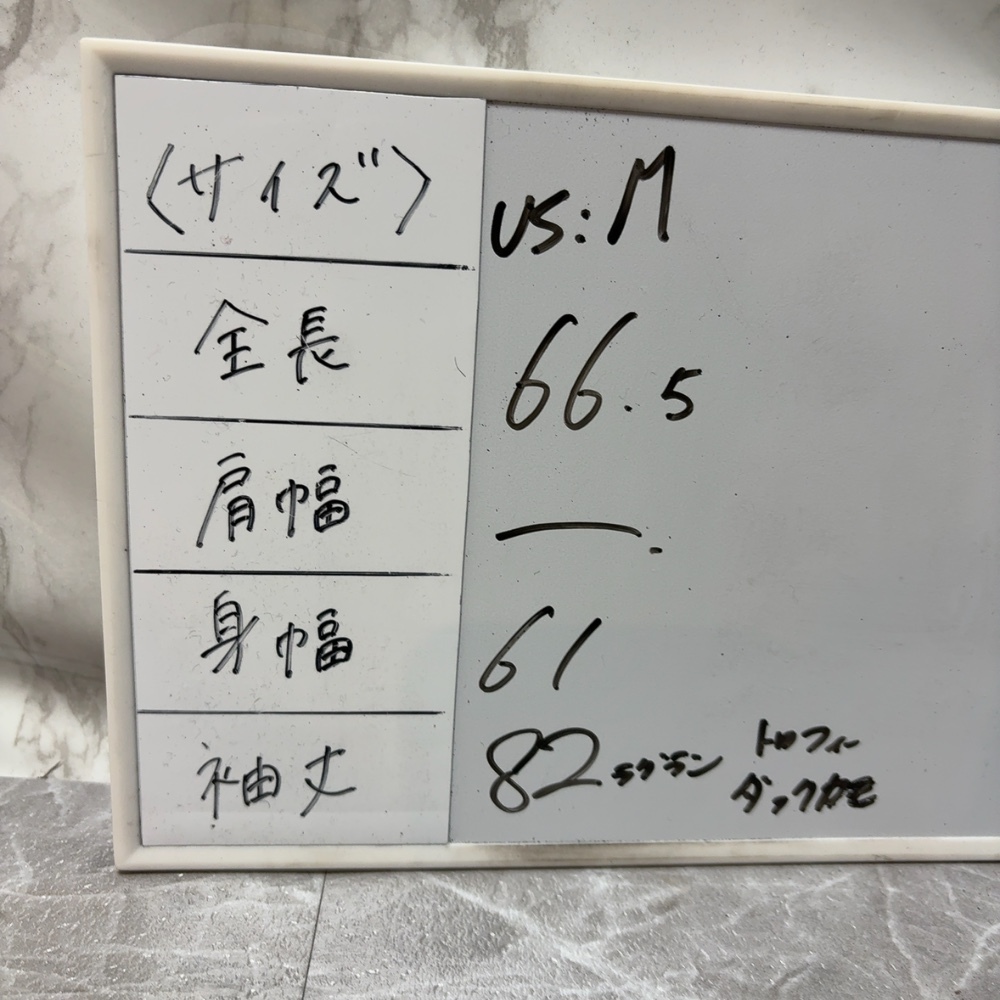 〈サイズ〉 US:M
全長 66.5
肩幅 —.
身幅 61
袖丈 82 ラグラン
トロフィー
ダック